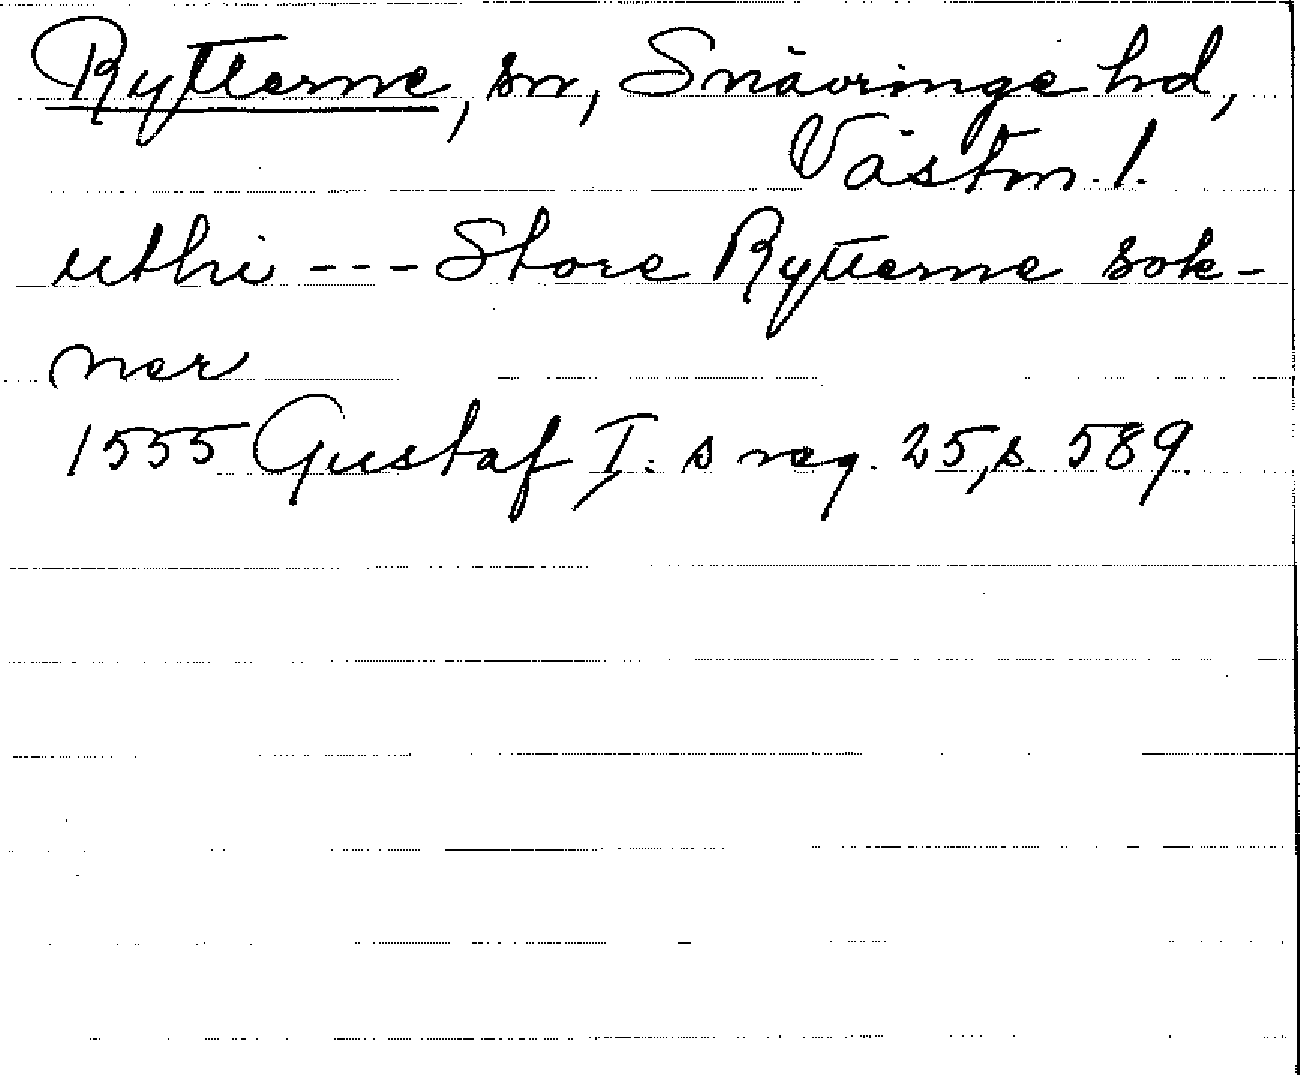 Rytterne, sn, Snävringe hd,
Västm. l.
uthi --- Store Rytterne sok-
ner
1555 Gustaf I:s reg. 25, s. 589.